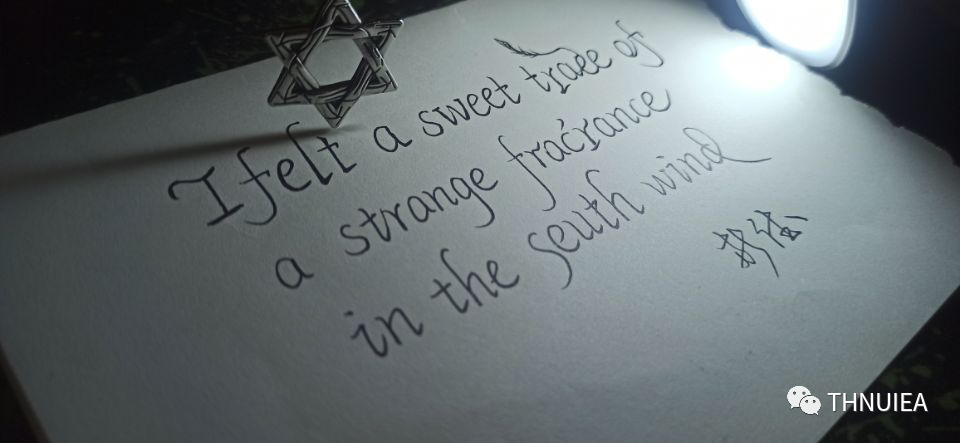 I felt a sweet trace of
a strange fracirance
in the south wind
THNUIEA